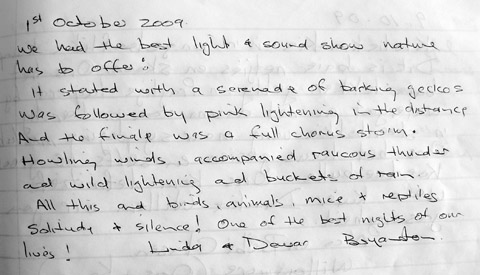 1st October 2009.
We had the best light & sound show nature
has to offer!
It started with a serenade of barking geckos
was followed by pink lightening in the distance
And the finale was a full chorus storm.
Howling winds, accompanied raucous thunder
and wild lightening and buckets of rain.
All this and birds, animals, mice & reptiles
Solitude & silence! One of the best nights of our
lives! Linda &